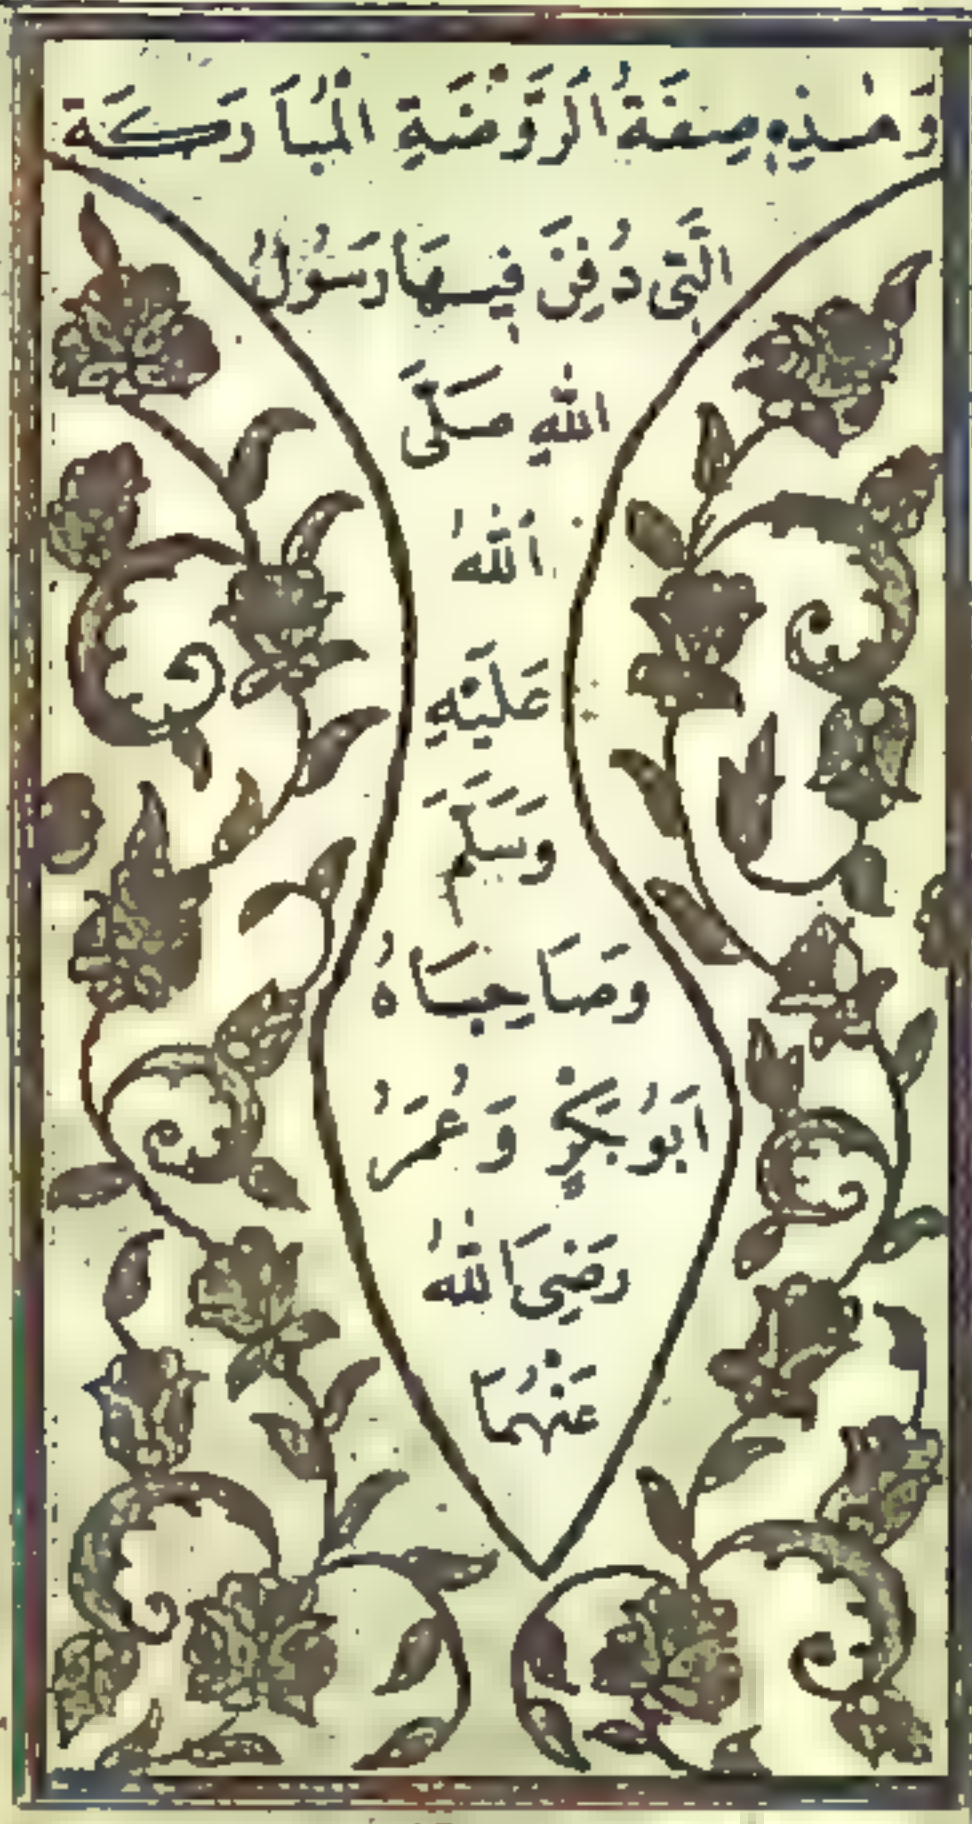 وَهٰذِهِ صِفَةُ الرَّوْضَةِ الْمُبَارَكَةِ
الَّتِي دُفِنَ فِيهَا رَسُولُ
اللهِ صَلَّى
اللهُ
عَلَيْهِ
وَسَلَّمَ
وَصَاحِبَاهُ
اَبُوبَكْرٍ وَعُمَرُ
رَضِيَ اللهُ
عَنْهُمَا